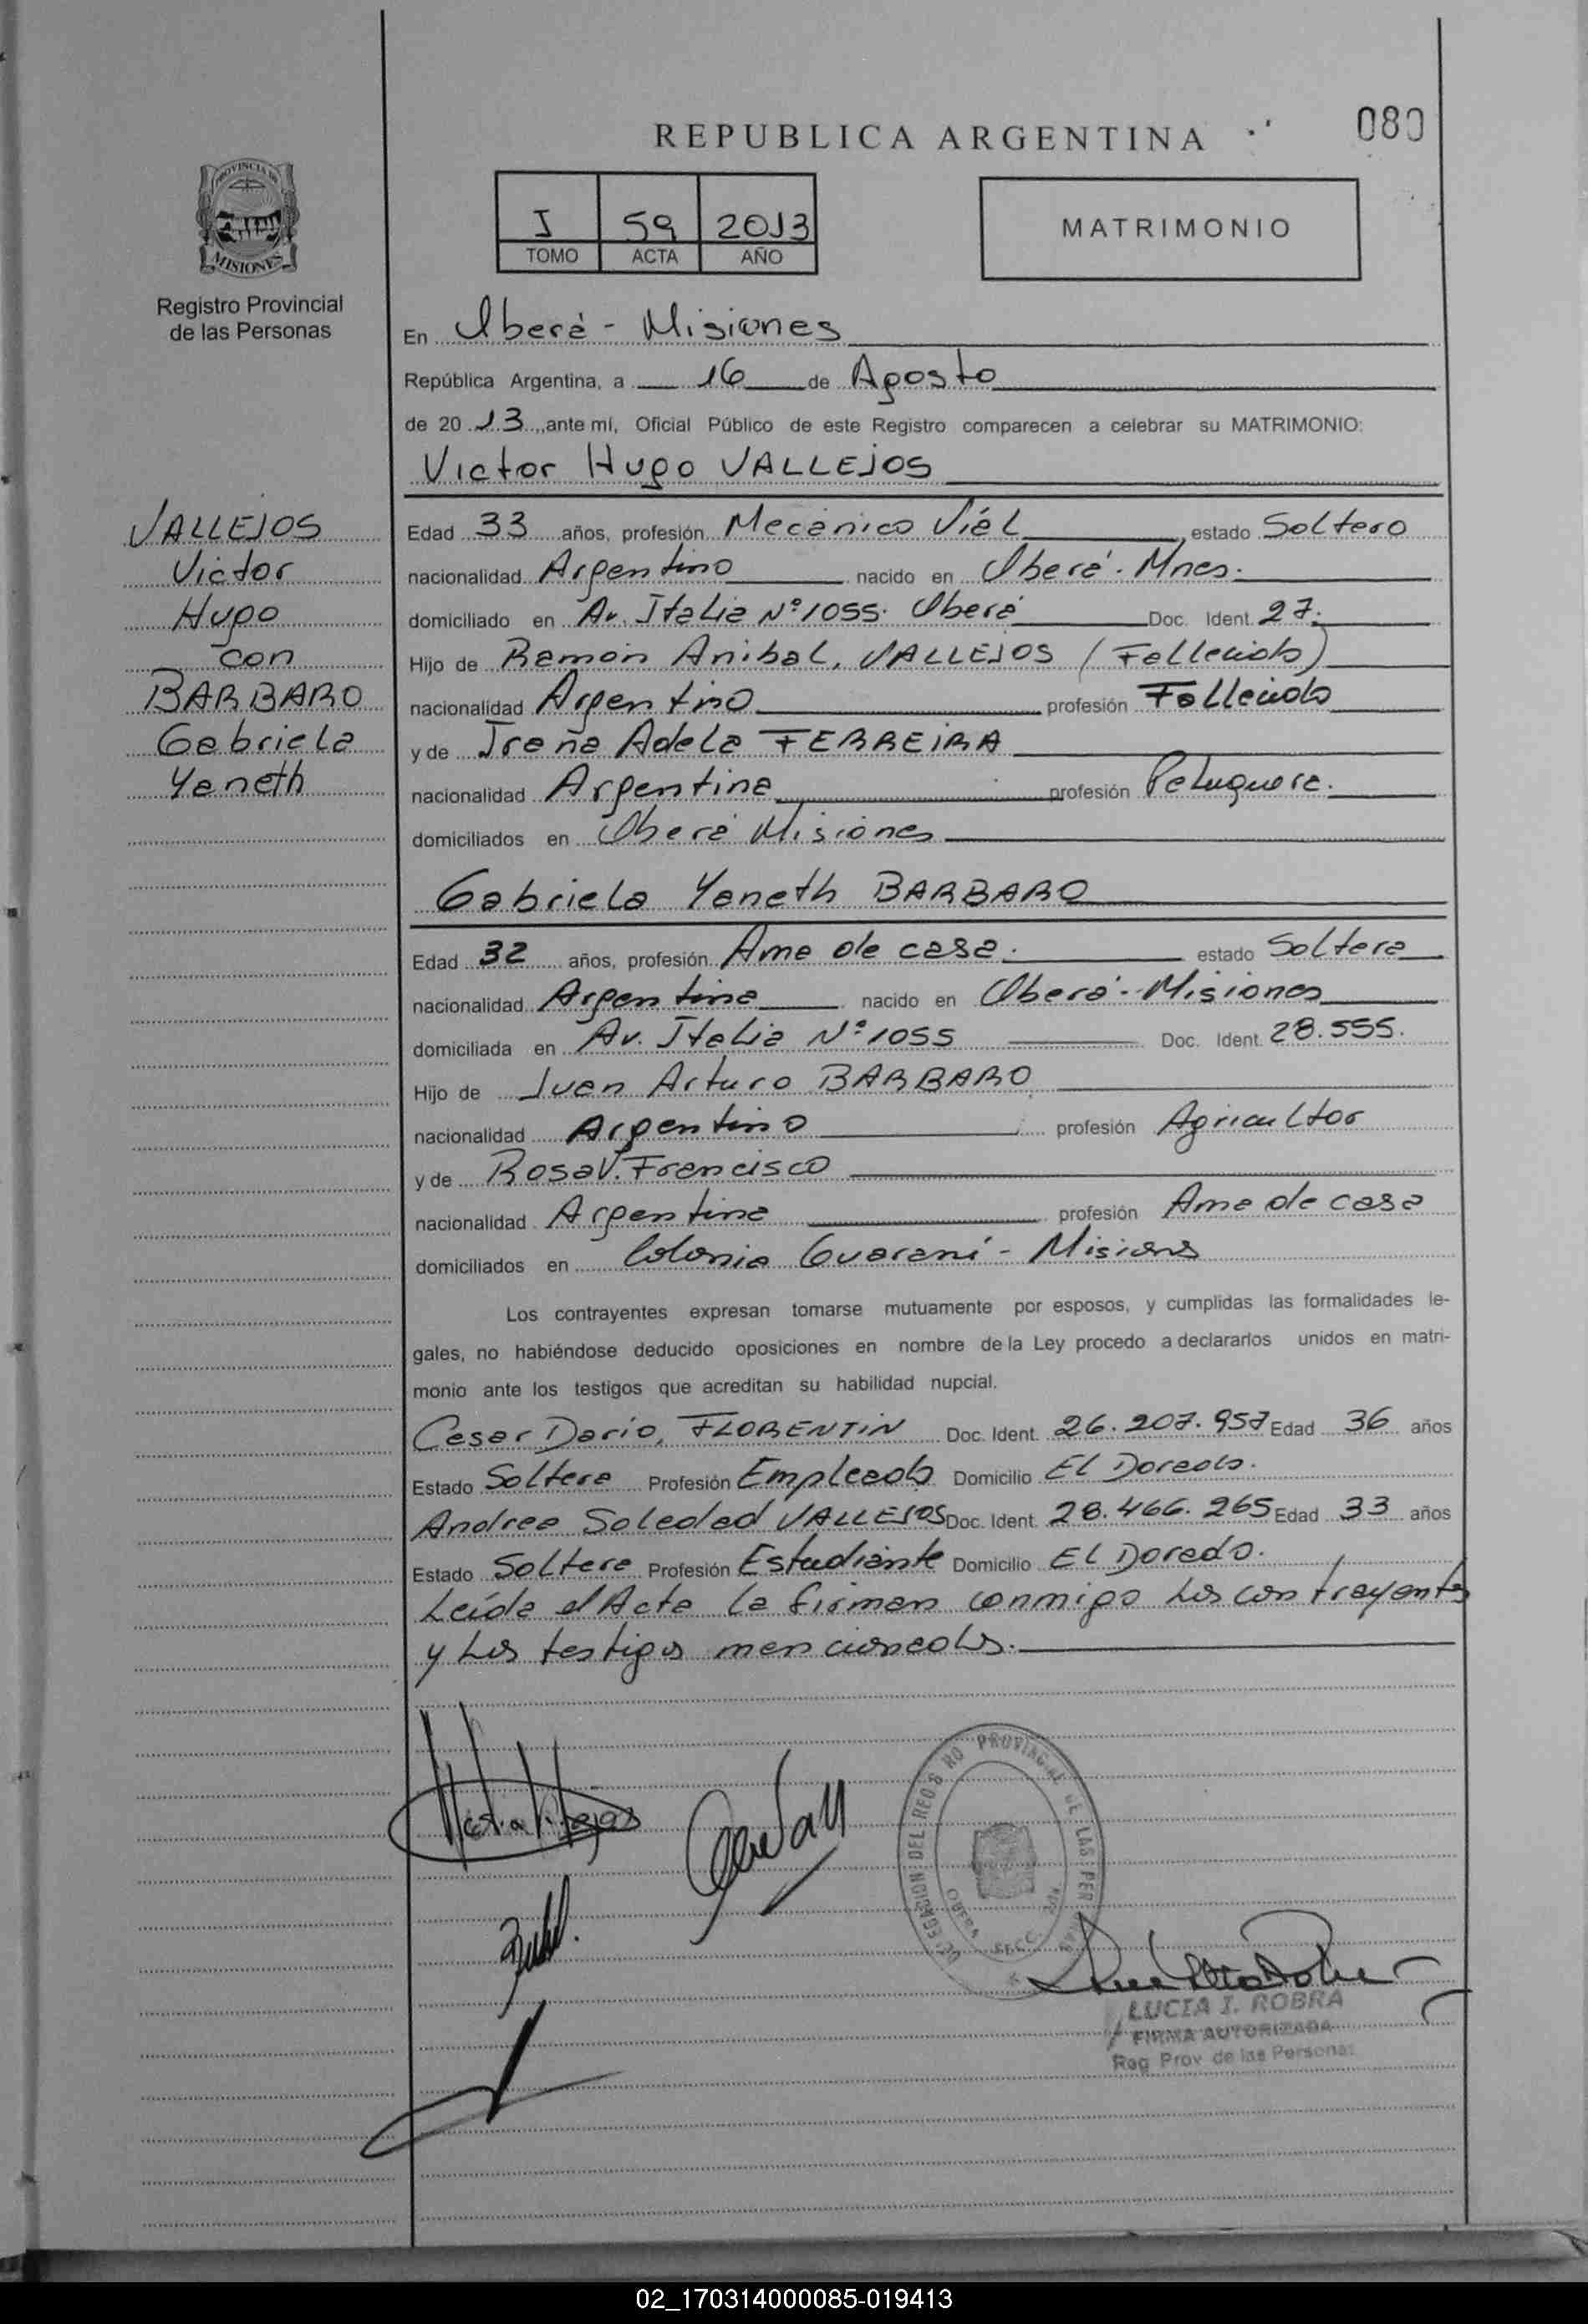 REPUBLICA ARGENTINA
080
PROVINCIA DE
MISIONES
Registro Provincial
de las Personas
I 59 2013
TOMO ACTA AÑO
MATRIMONIO
En Oberá - Misiones
República Argentina, a 16 de Agosto
de 2013, ante mí, Oficial Público de este Registro comparecen a celebrar su MATRIMONIO:
Victor Hugo VALLEJOS
VALLEJOS
Victor
Hugo
con
BARBARO
Gabriela
Yaneth
Edad 33 años, profesión Mecánico Viál estado Soltero
nacionalidad Argentino nacido en Oberá - Mnes.
domiciliado en Av. Italia Nº 1055. Oberá Doc. Ident. 27.
Hijo de Ramón Anibal, VALLEJOS (Fallecido)
nacionalidad Argentino profesión Fallecido
y de Irena Adela FERREIRA
nacionalidad Argentina profesión Peluquera.
domiciliados en Oberá Misiones
Gabriela Yaneth BARBARO
Edad 32 años, profesión Ama de casa. estado Soltera
nacionalidad Argentina nacido en Oberá - Misiones
domiciliada en Av. Italia Nº 1055 Doc. Ident. 28.555.
Hijo de Juan Arturo BARBARO
nacionalidad Argentino profesión Agricultor
y de Rosa V. Francisco
nacionalidad Argentina profesión Ama de casa
domiciliados en Colonia Guaraní - Misiones
Los contrayentes expresan tomarse mutuamente por esposos, y cumplidas las formalidades le-
gales, no habiéndose deducido oposiciones en nombre de la Ley procedo a declararlos unidos en matri-
monio ante los testigos que acreditan su habilidad nupcial.
Cesar Dario, FLORENTIN Doc. Ident. 26.207.957 Edad 36 años
Estado Soltero Profesión Empleado Domicilio El Dorado.
Andrea Soledad VALLEJOS Doc. Ident. 28.466.265 Edad 33 años
Estado Soltera Profesión Estudiante Domicilio El Dorado.
Leída el Acta la firman conmigo los contrayentes
y los testigos mencionados.
LUCIA I. ROBRA
FIRMA AUTORIZADA
Reg Prov de las Personas
02_170314000085-019413